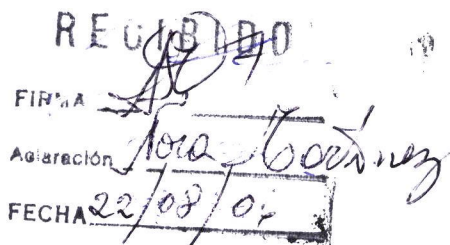 RECIBIDO
FIRMA
Aclaración Nora
FECHA 22/08/0